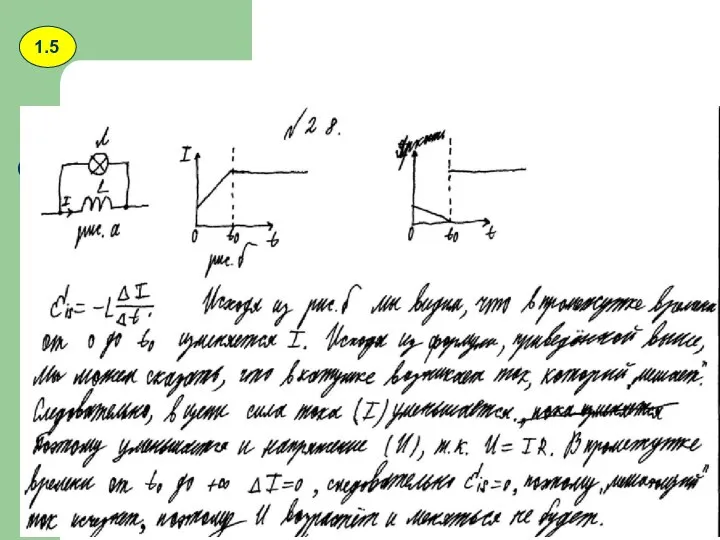 1.5
№ 28.
Л
L
I
рис. а
I
0 t₀ t
рис. б
Яркость
0 t₀ t
ℰis = -L ΔI/Δt. Исходя из рис. б мы видим, что в промежутке времени
от 0 до t₀ изменяется I. Исходя из формулы, приведённой выше,
мы можем сказать, что в катушке возникает ток, который „мешает".
Следовательно, в цепи сила тока (I) уменьшается.,
поэтому уменьшается и напряжение (U), т.к. U = IR. В промежутке
времени от t₀ до +∞ ΔI=0, следовательно ℰis=0, поэтому „мешающий"
ток исчезнет, поэтому U возрастёт и меняться не будет.